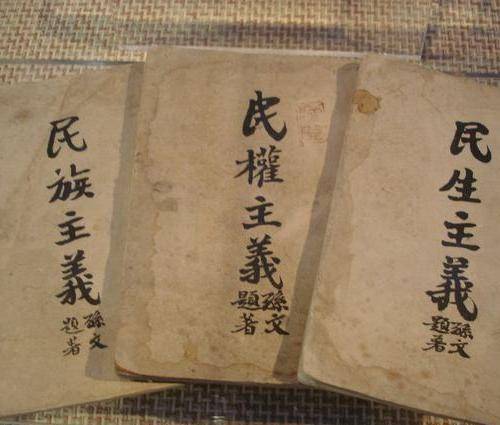 民族主義
孫文
著題
民權主義
孫文
著題
民生主義
孫文
著題